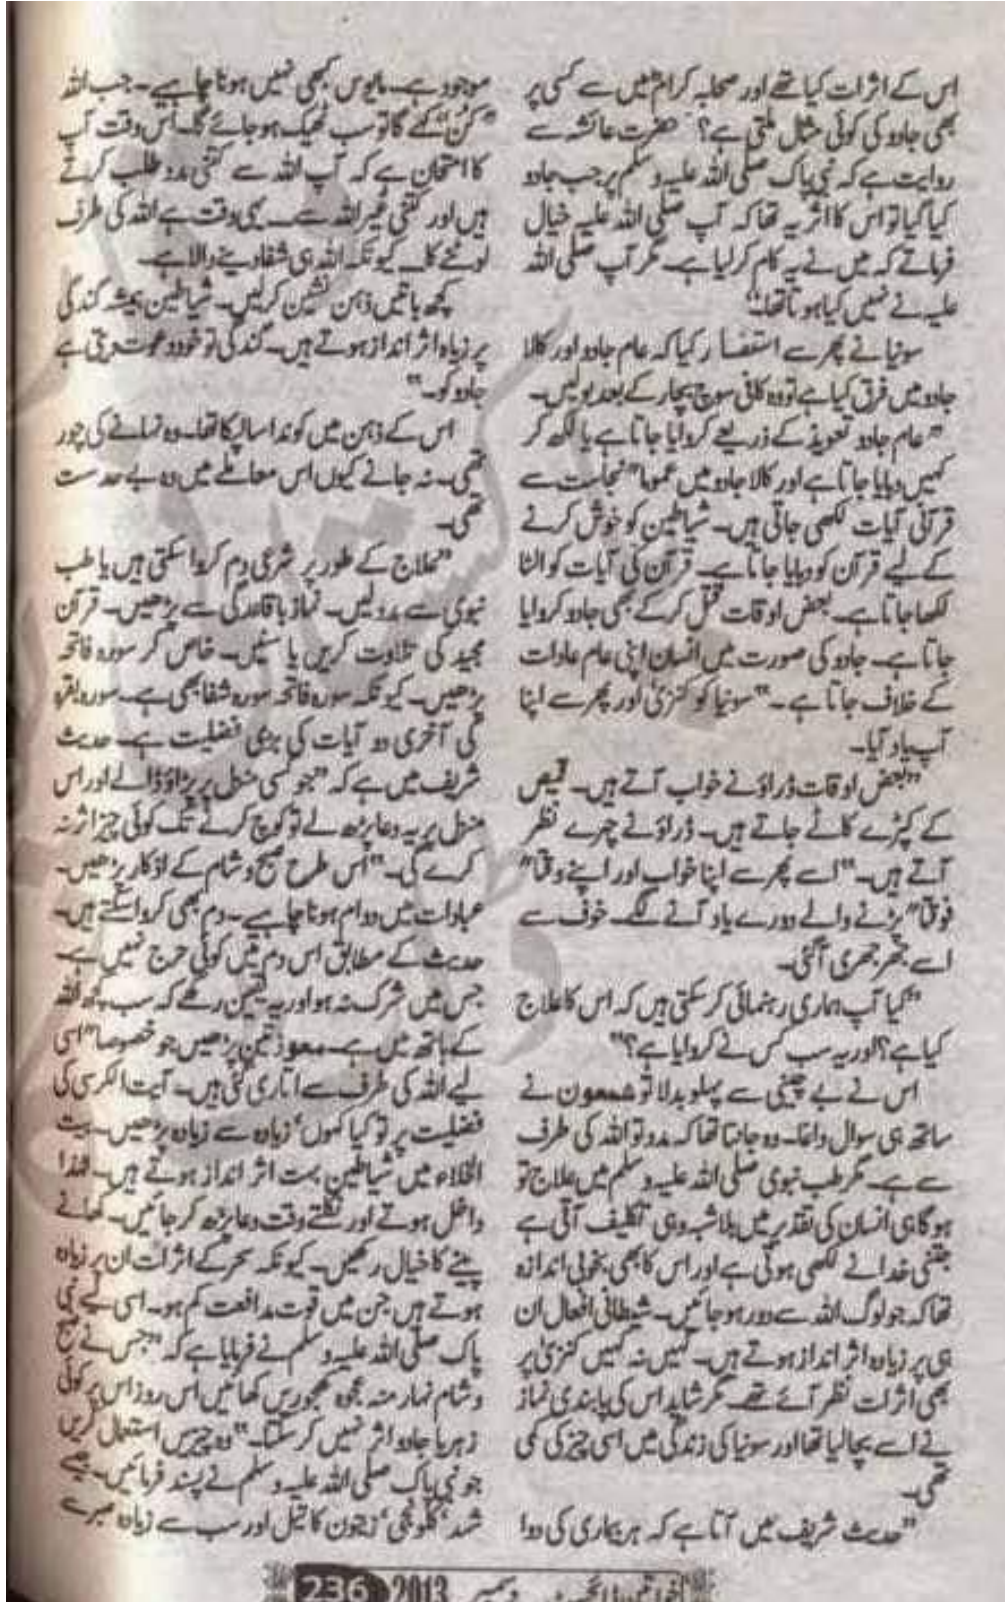 اس کے اثرات کیا تھے اور صحابہ کرامؓ میں سے کسی پر
بھی جادو کی کوئی مثال ملتی ہے؟ حضرت عائشہ سے
روایت ہے کہ نبی پاک صلی اللہ علیہ وسلم پر جب جادو
کیا گیا تو اس کا اثر یہ تھا کہ آپ صلی اللہ علیہ خیال
فرماتے کہ میں نے یہ کام کر لیا ہے۔ مگر آپ صلی اللہ
علیہ نے نہیں کیا ہوتا تھا۔"
سونیا نے پھر سے استفسار کیا کہ عام جادو اور کالا
جادو میں فرق کیا ہے تو وہ کافی سوچ بچار کے بعد بولیں۔
"عام جادو تعویذ کے ذریعے کروایا جاتا ہے یا لکھ کر
کہیں دبایا جاتا ہے اور کالا جادو میں عموما" نجاست سے
قرآنی آیات لکھی جاتی ہیں۔ شیاطین کو خوش کرنے
کے لیے قرآن کو دبایا جاتا ہے۔ قرآن کی آیات کو الٹا
لکھا جاتا ہے۔ بعض اوقات قتل کرکے بھی جادو کروایا
جاتا ہے۔ جادو کی صورت میں انسان اپنی عام عادات
کے خلاف جاتا ہے۔" سونیا کو کنزیٰ اور پھر سے اپنا
آپ یاد آیا۔
"بعض اوقات ڈراؤنے خواب آتے ہیں۔ قمیص
کے کپڑے کاٹے جاتے ہیں۔ ڈراؤنے چہرے نظر
آتے ہیں۔" اسے پھر سے اپنا خواب اور اپنے وقتا"
فوقتا" پڑنے والے دورے یاد آنے لگے۔ خوف سے
اسے جھرجھری آگئی۔
"کیا آپ ہماری رہنمائی کرسکتی ہیں کہ اس کا علاج
کیا ہے؟ اور یہ سب کس نے کروایا ہے؟"
اس نے بے چینی سے پہلو بدلا تو شمعون نے
ساتھ ہی سوال داغا۔ وہ جانتا تھا کہ مدد تو اللہ کی طرف
سے ہے۔ مگر طب نبوی صلی اللہ علیہ وسلم میں علاج تو
ہوگا ہی انسان کی تقدیر میں بلاشبہ وہی تکلیف آتی ہے
جتنی خدا نے لکھی ہوتی ہے اور اس کا بھی بخوبی اندازہ
تھا کہ جو لوگ اللہ سے دور ہوجائیں۔ شیطانی افعال ان
ہی پر زیادہ اثر انداز ہوتے ہیں۔ کہیں نہ کہیں کنزیٰ پر
بھی اثرات نظر آئے تھے۔ مگر شاید اس کی پابندی نماز
نے اسے بچا لیا تھا اور سونیا کی زندگی میں اسی چیز کی کمی
تھی۔
"حدیث شریف میں آتا ہے کہ ہر بیماری کی دوا
موجود ہے۔ مایوس کبھی نہیں ہونا چاہیے۔ جب اللہ
"کُن" کہے گا تو سب ٹھیک ہوجائے گا۔ اس وقت آپ
کا امتحان ہے کہ آپ اللہ سے کتنی مدد طلب کرتے
ہیں اور کتنی غیر اللہ سے۔ یہی وقت ہے اللہ کی طرف
لوٹنے کا۔ کیونکہ اللہ ہی شفا دینے والا ہے۔
کچھ باتیں ذہن نشین کرلیں۔ شیاطین ہمیشہ گندگی
پر زیادہ اثر انداز ہوتے ہیں۔ گندگی تو خود دعوت دیتی ہے
جادو کو۔"
اس کے ذہن میں کوندا سا لپکا تھا۔ وہ نہانے کی چور
تھی۔ نہ جانے کیوں اس معاملے میں وہ بے حد ست
تھی۔
"علاج کے طور پر شرعی دم کروا سکتی ہیں یا طب
نبوی سے مدد لیں۔ نماز باقاعدگی سے پڑھیں۔ قرآن
مجید کی تلاوت کریں یا سنیں۔ خاص کر سورہ فاتحہ
پڑھیں۔ کیونکہ سورہ فاتحہ سورہ شفا بھی ہے۔ سورہ بقرہ
کی آخری دو آیات کی بڑی فضیلت ہے۔ حدیث
شریف میں ہے کہ "جو کسی منزل پر پڑاؤ ڈالے اور اس
منزل پر یہ دعا پڑھ لے تو کوچ کرنے تک کوئی چیز اثر نہ
کرے گی۔" اس طرح صبح و شام کے اذکار پڑھیں۔
عبادات میں دوام ہونا چاہیے۔ دم بھی کروا سکتے ہیں۔
حدیث کے مطابق اس دم میں کوئی حرج نہیں ہے۔
جس میں شرک نہ ہو اور یہ یقین رہے کہ سب کچھ اللہ
کے ہاتھ میں ہے۔ معوذتین پڑھیں جو خصوصا" اسی
لیے اللہ کی طرف سے اتاری گئی ہیں۔ آیت الکرسی کی
فضیلت پر تو کیا کہوں' زیادہ سے زیادہ پڑھیں۔ بیت
الخلاء میں شیاطین بہت اثر انداز ہوتے ہیں۔ لہٰذا
داخل ہوتے اور نکلتے وقت دعا پڑھ کر جائیں۔ کھانے
پینے کا خیال رکھیں۔ کیونکہ سحر کے اثرات ان پر زیادہ
ہوتے ہیں جن میں قوت مدافعت کم ہو۔ اسی لیے نبی
پاک صلی اللہ علیہ وسلم نے فرمایا ہے کہ "جس نے صبح
و شام نہار منہ عجوہ کھجوریں کھائیں اس روز اس پر کوئی
زہر یا جادو اثر نہیں کرسکتا۔" وہ چیزیں استعمال کریں
جو نبی پاک صلی اللہ علیہ وسلم نے پسند فرمائیں۔ جیسے
شہد' کلونجی' زیتون کا تیل اور سب سے زیادہ صبرے
خواتین ڈائجسٹ دسمبر 2013 236